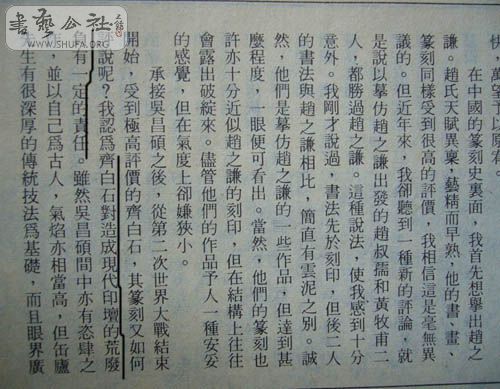 書藝公社
WWW.SHUFA.ORG
快，希望以原宥。
在中國的篆刻史裏面，我首先想舉出趙之
謙。趙氏天賦異稟，藝精而早熟，他的書、畫、
篆刻同樣受到很高的評價，我相信這是毫無異
議的。但近年來，我卻聽到一種新的評論，就
是說以摹仿趙之謙出發的趙叔孺和黃牧甫二
人，都勝過趙之謙。這種說法，使我感到十分
意外。我剛才說過，書法先於刻印，但後二人
的書法與趙之謙相比，簡直有雲泥之別。誠
然，他們是摹仿趙之謙的一些作品，但達到甚
麼程度，一眼便可看出。當然，他們的篆刻也
許亦十分近似趙之謙的刻印，但在結構上往往
會露出破綻來。儘管他們的作品予人一種安妥
的感覺，但在氣度上卻嫌狹小。
承接吳昌碩之後，從第二次世界大戰結束
開始，受到極高評價的齊白石，其篆刻又如何
評說呢？我認爲齊白石對造成現代印壇的荒廢
負有一定的責任。雖然吳昌碩間中亦有恣肆之
作，並以自己爲古人，氣焰亦相當高，但缶廬
先生有很深厚的傳統技法爲基礎，而且眼界廣